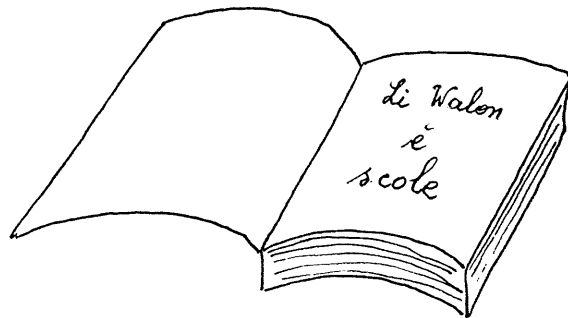 Li Walon
è
scole